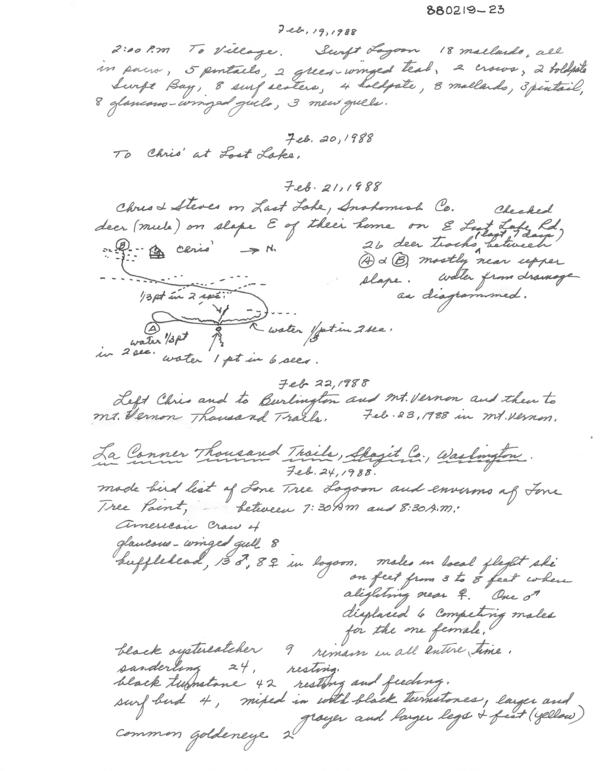 880219-23
Feb. 19, 1988
2:00 P.M To Village. Surft Lagoon 18 mallards, all
in pairs, 5 pintails, 2 green-winged teal, 2 crows, 2 boldpate
Surft Bay, 8 surf scoters, 4 boldpate, 8 mallards, 3 pintail,
8 glaucous-winged gulls, 3 mew gulls.
Feb. 20, 1988
To Chris' at Lost Lake.
Feb. 21, 1988
Chris & Steves on Lost Lake, Snohomish Co. Checked
deer (mule) on slope E of their home on E Lost Lake Rd.
(last 7 days)
26 deer tracks ^ between
B Chris' → N.
A & B, mostly near upper
slope. Water from drainage
as diagrammed.
1/3 pt in 2 sec.
A
water 1/3 pt
in 2 sec.
water 1/3 pt in 2 sec.
water 1 pt in 6 secs.
Feb 22, 1988
Left Chris and to Burlington and Mt. Vernon and then to
Mt. Vernon Thousand Trails. Feb. 23, 1988 in Mt. Vernon.
La Conner Thousand Trails, Skagit Co., Washington.
Feb. 24, 1988.
made bird list of Lone Tree Lagoon and environs of Lone
Tree Point, between 7:30 AM and 8:30 A.M:
American Crow 4
glaucous-winged gull 8
bufflehead, 13 ♂, 8 ♀ in lagoon. males in local flight ski
on feet from 3 to 8 feet when
alighting near ♀. One ♂
displaced 6 competing males
for the one female.
black oystercatcher 9 remain in all entire time.
sanderling 24, resting.
black turnstone 42 resting and feeding.
surf bird 4, mixed in with black turnstones, larger and
grayer and larger legs & feet (yellow)
common goldeneye 2